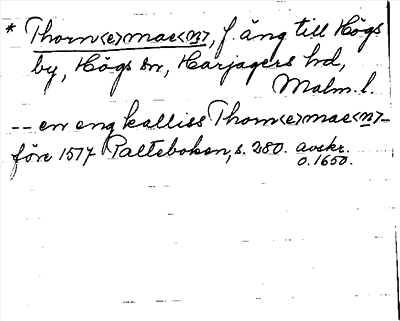 * Thorn<e>mae<n>, f. äng till Högs
by, Högs sn, Harjagers hd,
Malm. l.
-- en eng kalliss Thorn<e>mae<n>-
före 1517 Palteboken, s. 280. avskr.
o. 1650.